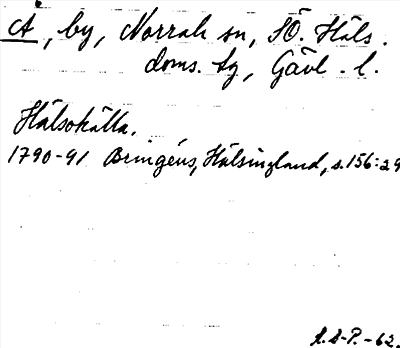 Å, by, Norrala sn, SÖ. Häls.
doms. tg, Gävl. l.
Hälsokälla.
1790-91 Bringéus, Hälsingland, s.156:29
S-P.-62.